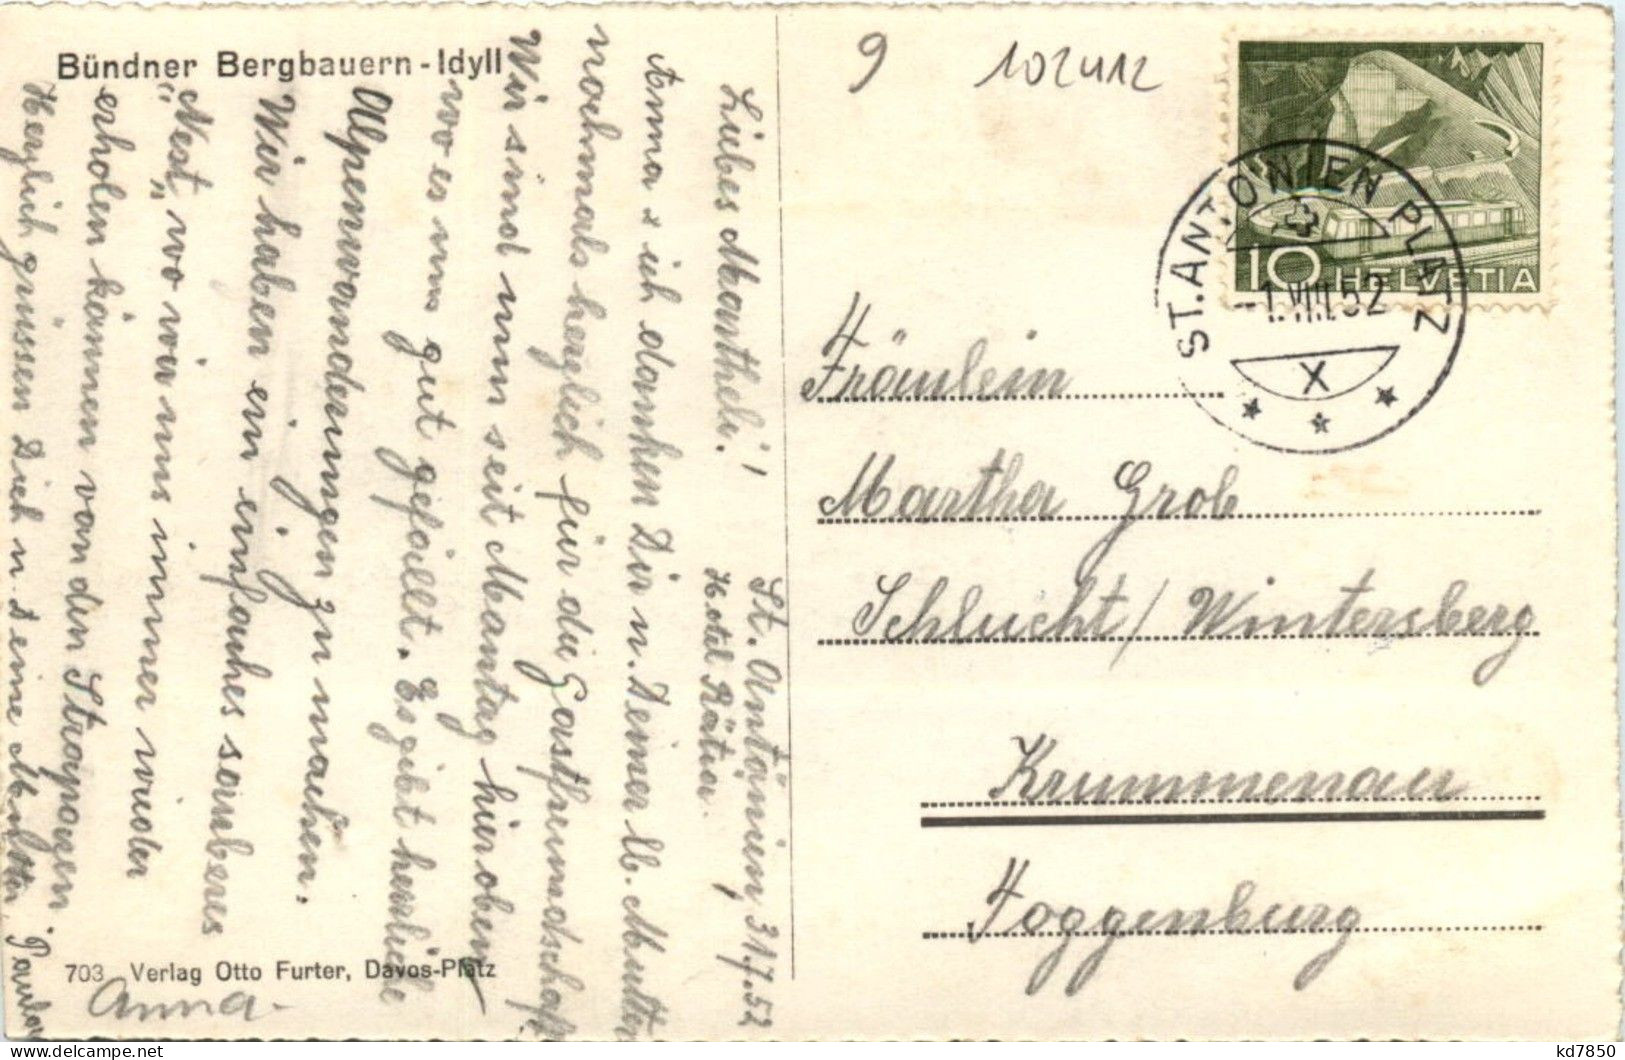 Bündner Bergbauern-Idyll
9
102412
10 HELVETIA
ST. ANTÖNIEN PLATZ
-1.VIII.52
X
St. Antönien, 31.7.52
Hotel Rätia.
Liebes Martheli!
Anna & ich danken Dir u. Deiner lb. Mutter
nochmals herzlich für die Gastfreundschaft
Wir sind nun seit Montag hier oben
wo es uns gut gefällt. Es gibt herrliche
Alpenwanderungen zu machen.
Wir haben ein einfaches sauberes
„Nest„ wo wir uns immer wieder
erholen können von den Strapazen
Herzlich grüssen Dich u. Deine Mutter,
Anna.
Fräulein
Martha Grob
Schlucht/Wintersberg
Krummenau
Toggenburg
703 Verlag Otto Furter, Davos-Platz
kd7850